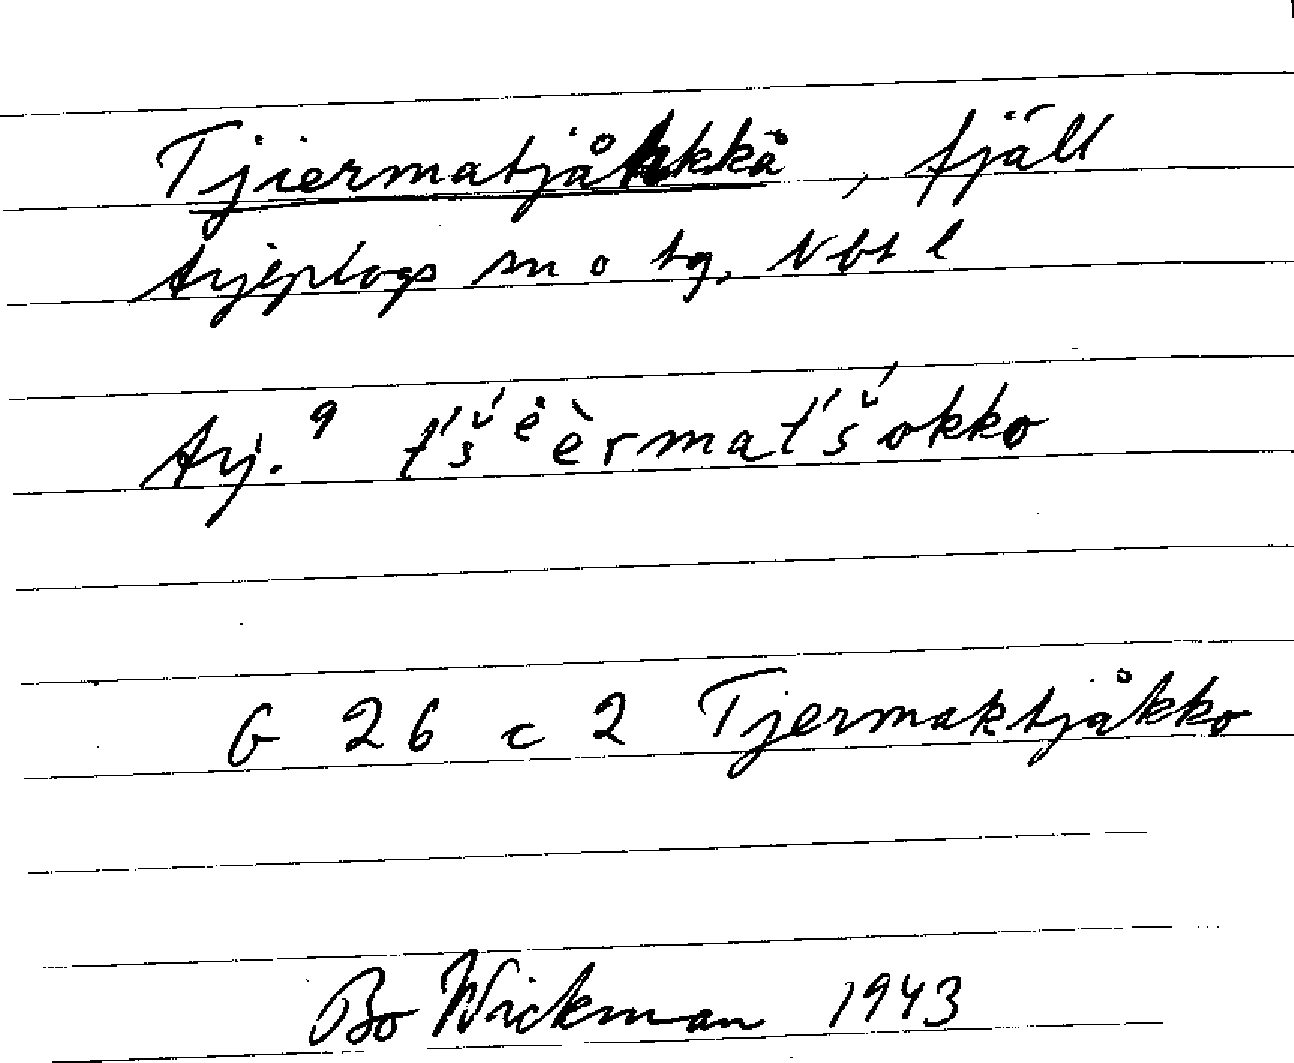 Tjiermatjåhkkå, fjäll
Arjeplogs sn o tg, Nbt l
Arj. 9 t́š́ᵉ̇èrmat́š́okko
G 26 c 2 Tjermaktjåkko
Bo Wickman 1943